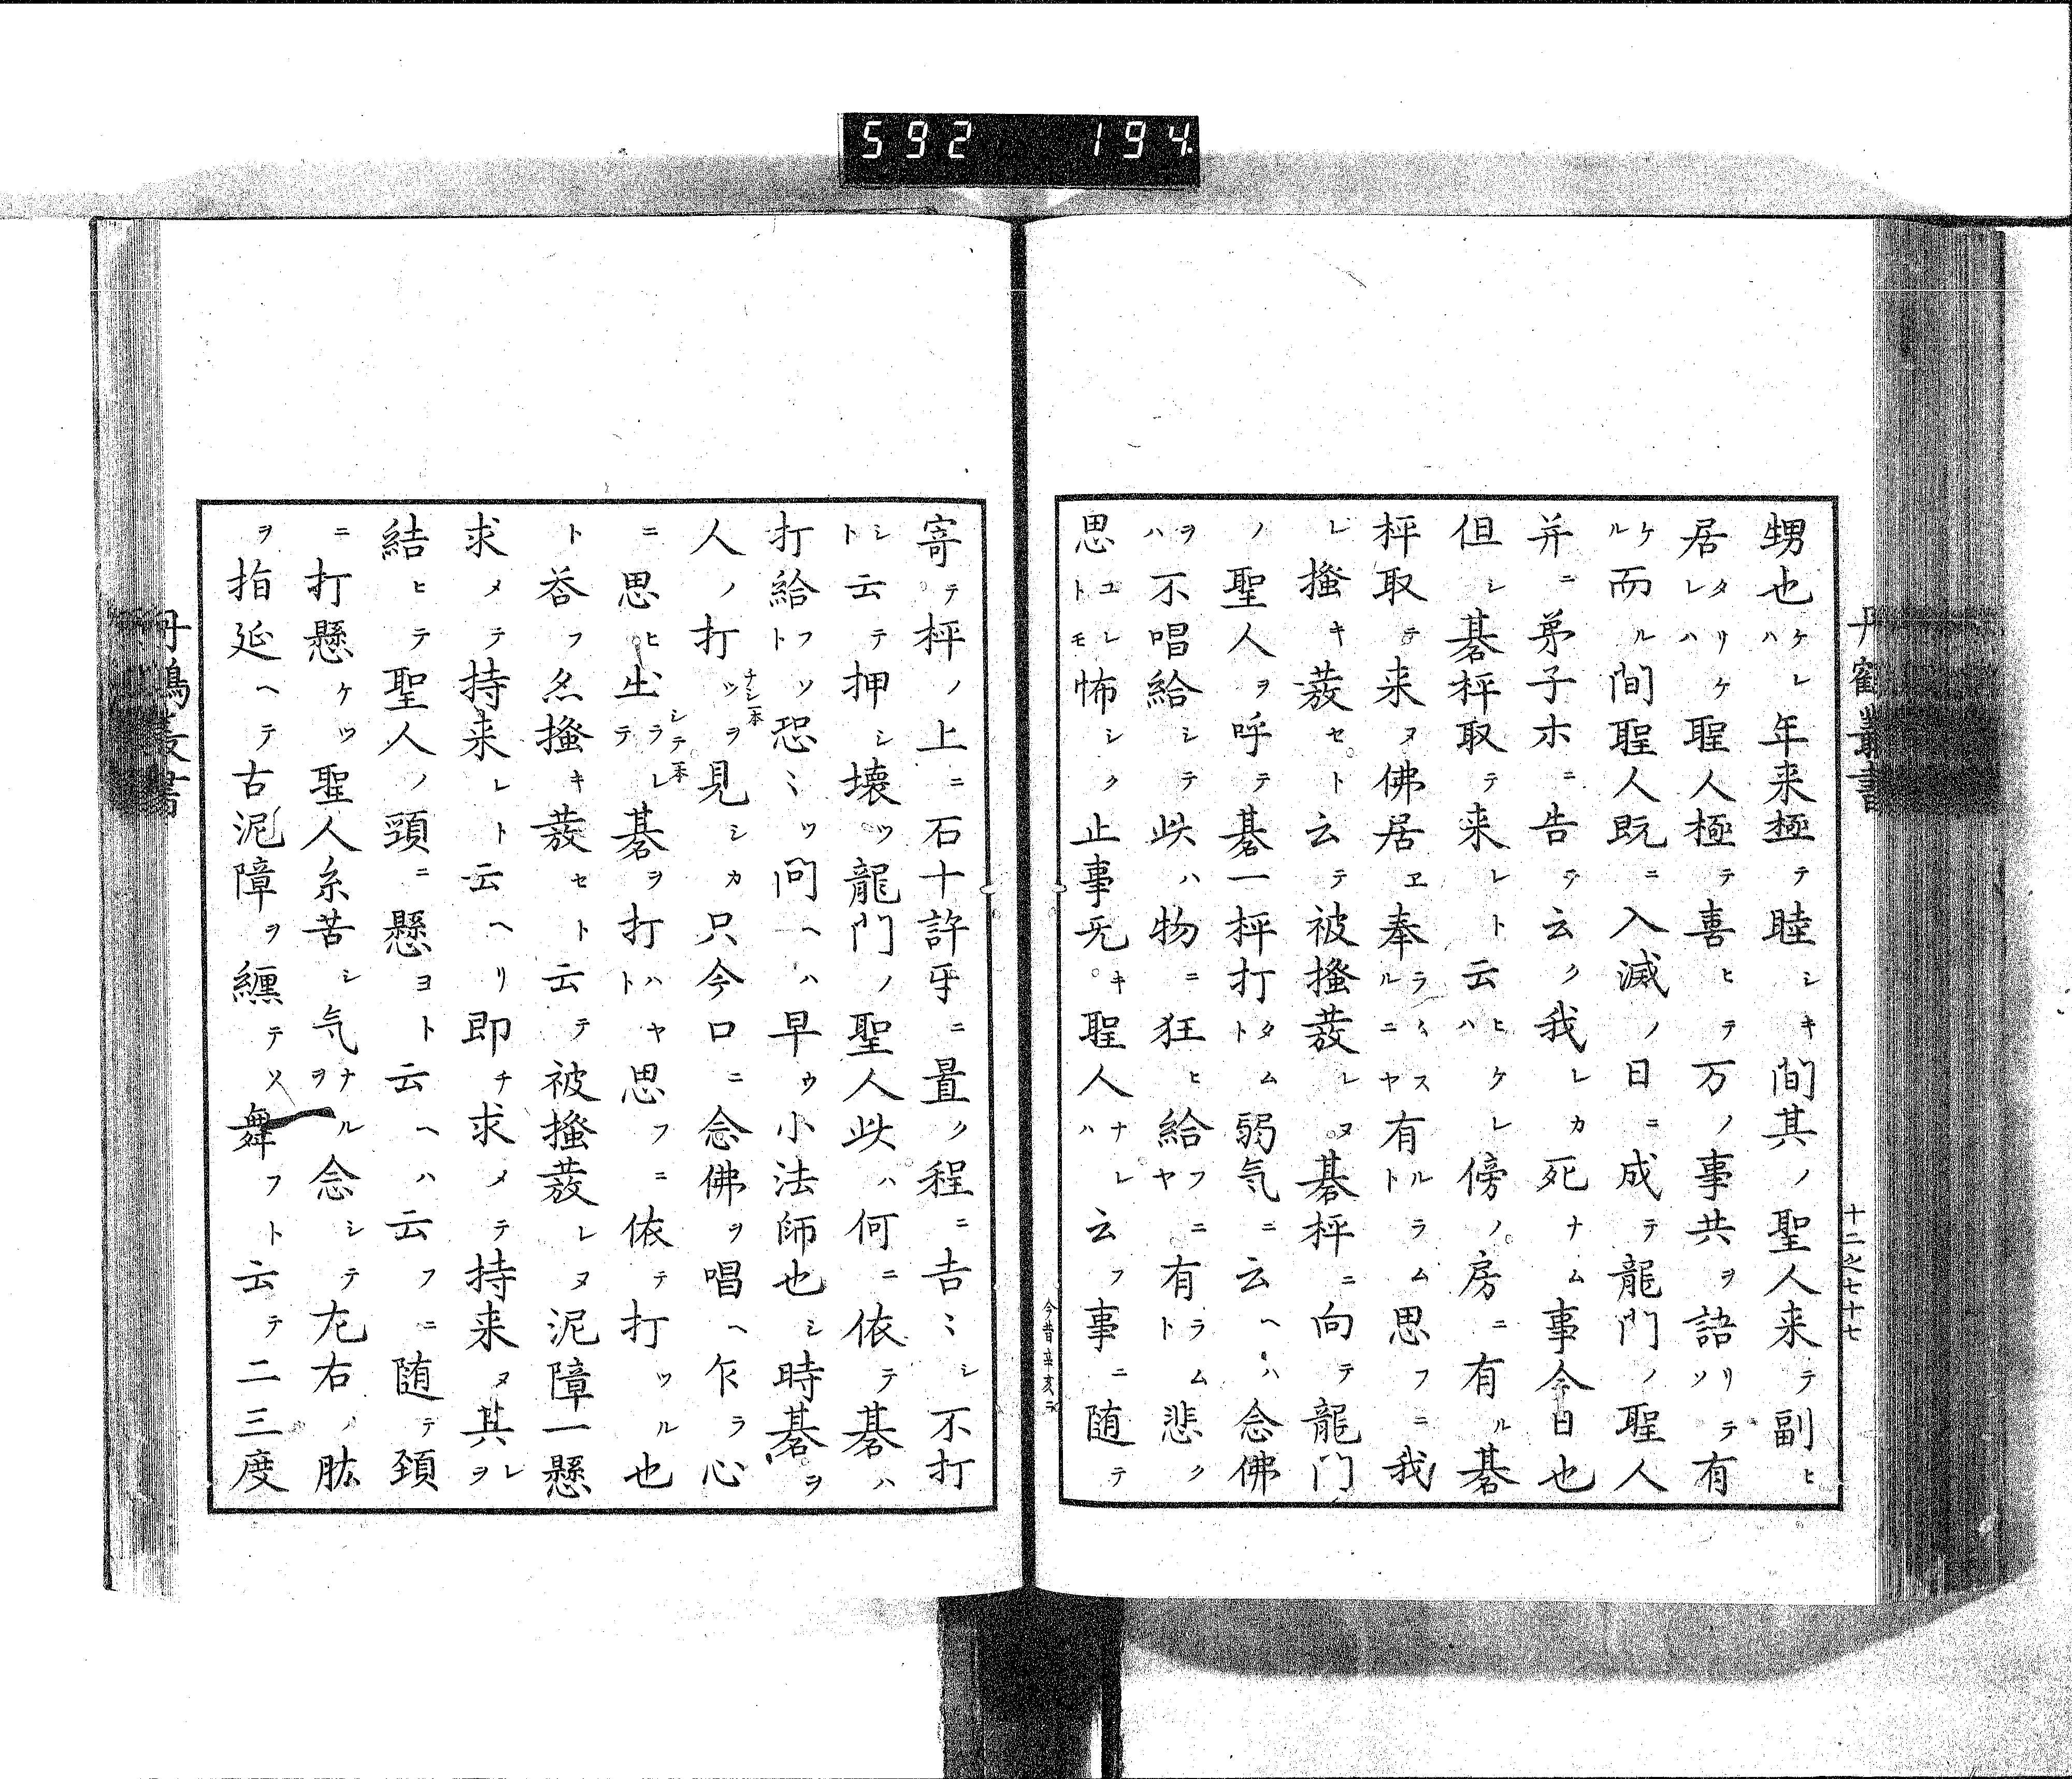 592 194
丹鶴叢書
十二之七十七
甥也ケレハ年来極テ睦シキ間其ノ聖人来テ副ヒ
居タリケレハ聖人極テ喜ヒテ万ノ事共ヲ語リテソ有
ケル而ル間聖人既ニ入滅ノ日ニ成テ龍門ノ聖人
并ニ弟子ホニ告テ云ク我レカ死ナム事今日也
但シ碁枰取テ来レト云ヒケレハ傍ノ房ニ有ル碁
枰取テ来ヌ佛居ヱ奉ラムスルニヤ有ルラムト思フニ我
レ掻キ𦲷セト云テ被掻𦲷レヌ碁枰ニ向テ龍門
ノ聖人ヲ呼テ碁一枰打タムト弱気ニ云ヘハ念佛
ヲハ不唱給シテ此ハ物ニ狂ヒ給フニヤ有ラムト悲ク
思ユレトモ怖シク止事无キ聖人ナレハ云フ事ニ随テ
今昔辛亥
寄テ枰ノ上ニ石十許手ニ置ク程ニ吉〻シ不打
シト云テ押シ壊ツ龍門ノ聖人此ハ何ニ依テ碁ハ
打給フソト恐〻ツ問ヘハ早ウ小法師也シ時碁ヲ
人ノ打ツヲ見シカ只今口ニ念佛ヲ唱ヘ乍ラ心
ナシ一本
ニ思ヒ出ラレテ碁ヲ打ハヤト思フニ依テ打ツル也
シテ一本
ト荅フ亦掻キ𦲷セト云テ被掻𦲷レヌ泥障一懸
求メテ持来レト云ヘリ即チ求メテ持来ヌ其レヲ
結ヒテ聖人ノ頸ニ懸ヨト云ヘハ云フニ随テ頸
ニ打懸ケツ聖人糸苦シ気ナルヲ念シテ左右ノ肱
ヲ指延ヘテ古泥障ヲ纏テソ舞フト云テ二三度
丹鶴叢書